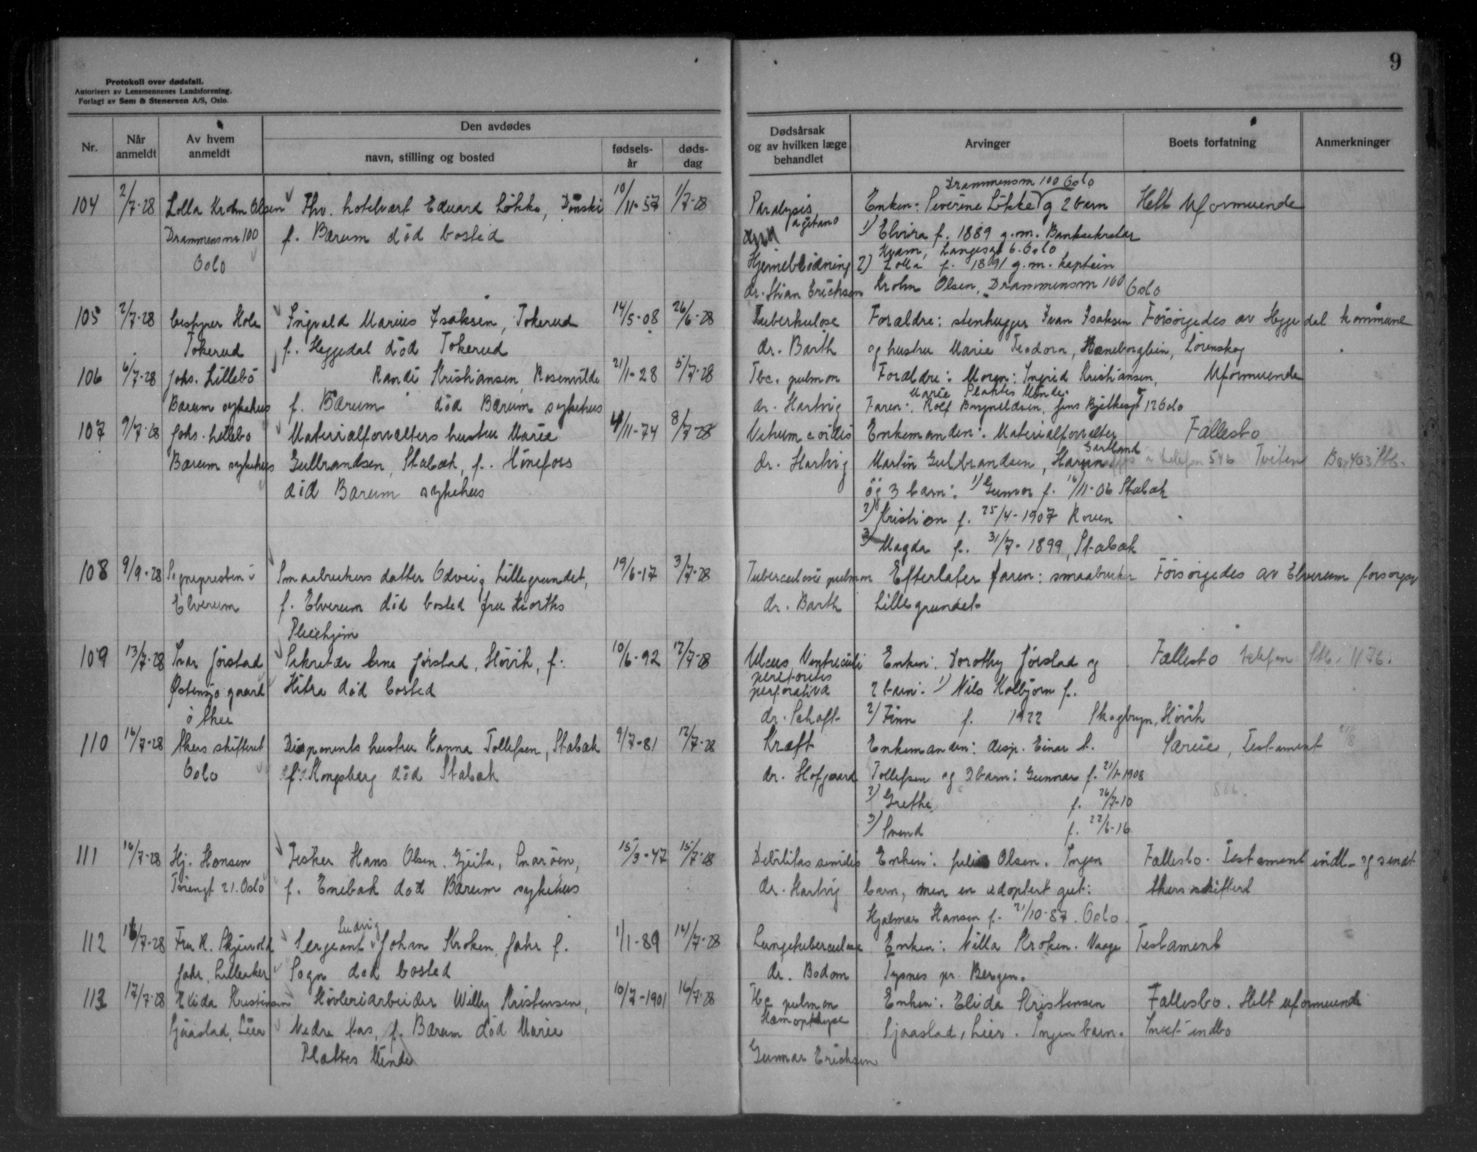 9
Protokoll over dødsfall.
Autorisert av Lensmennenes Landsforening.
Forlagt av Sem & Stenersen A/S, Oslo.
Nr.
Når anmeldt
Av hvem anmeldt
Den avdødes
navn, stilling og bosted
fødsels-år
døds-dag
Dødsårsak og av hvilken læge behandlet
Arvinger
Boets forfatning
Anmerkninger
Drammensvn 100 Oslo
104 2/7-28 Lolla Krohn Olsen Fhv. hotelvært Eduard Løkke, 10/11-57 1/7-28 Paralysis Enken: Severine Løkke og 2 barn Helt uformuende
Drammensvn 100 f. Bærum død bosted agitans 1) Elvira f. 1889 g.m. Banksekretær
Oslo Hjerneblødning 2) Lolla f. 1891 g.m. kaptein
dr. Stian Erichsen Krohn Olsen, Drammensvn 100 Oslo
105 2/7-28 bestyrer Hole Sigvald Marius Isaksen, Tokerud 14/5-08 26/6-28 Tuberkulose Foraldre: stenhugger Ivan Isaksen Forsørgedes av Heggedal kommune
Tokerud f. Heggedal død Tokerud dr. Barth og hustru Marie Teodora, Lørenskog
106 6/7-28 Johs. Lillebo Randi Kristiansen, Rosenvilde 21/1-28 5/7-28 Tbc. pulmon Foraldre: Moren: Ingrid Kristiansen, Uformuende
Marie Plahtes Minde
Bærum sykehus f. Bærum død Bærum sykehus dr. Hartvig Faren: Rolf Jens Bjelkesgt 12 Oslo
107 9/7-28 Johs. Lillebo Materialforvalters hustru Marie 4/11-74 8/7-28 dr. Hartvig Enkemanden: Materialforvalter Fællesbo
Bærum sykehus Gulbrandsen, Stabæk, f. Hønefoss Martin Gulbrandsen, telefon 546
død Bærum sykehus og 3 barn: 1) Gunvor f. 16/11-06 Stabæk
2) Kristian f. 25/4-1907 Rouen
3) Magda f. 31/7-1899, Stabæk
108 9/9-28 Sognepresten i Smaabrukers datter Odveig Lillegrundet, 19/6-17 3/7-28 Tuberculosis pulmon Efterlater faren: smaabruker Forsørgedes av Elverum forsorgsv
Elverum f. Elverum død bosted fru Hiorths dr. Barth Lillegrundet
Pleiehjem
109 13/7-28 Ivar Jørstad Sekretær Arne Jørstad, Høvik, f. 10/6-92 12/7-28 Ulcus Ventriculi Enken: Dorothy Jørstad og Fællesbo telefon Stb. 1176.
Østensjø gaard Hitra død bosted perforativa 2 barn: 1) Nils Kolbjørn f.
ø Aker dr. Schøft 2) Finn f. 1922 Skogbryn, Høvik
110 16/7-28 Akers skifteret Disponents hustru Hanna Tollefsen, Stabæk 9/7-81 12/7-28 Kræft Enkemanden: disp. Einar A. Særeie, Testament
Oslo f. Kongsberg død Stabæk dr. Hofgaard Tollefsen og 3 barn: Gunnar f. 21/1-1908
2) Grethe f. 26/7-10
3) Svend f. 22/6-16
111 16/7-28 Hj. Hansen Fisker Hans Olsen Gjeita, Snarøen, 15/3-47 15/7-28 Debilitas senilis Enken: Julie Olsen. Ingen Fællesbo. Testament indl. og sendt
Torengt 21. Oslo f. Enebak død Bærum sykehus dr. Hartvig barn, men en adoptert gut: Akers skifteret
Hjalmar Hansen f. 21/10-87. Oslo.
112 16/7-28 Fru K. Skjervold Sergeant Ludvig Johan Kroken, Jahr f. 1/1-89 14/7-28 Lungetuberculose Enken: Villa Kroken. Vaage Testament
Jahr, Lilleaker Sogn død bosted dr. Bodom Tysnes pr. Bergen.
113 17/7-28 Elida Kristensen Høvleriarbeider Willy Kristensen, 10/7-1901 16/7-28 Tbc pulmon Enken: Elida Kristensen Fællesbo. Helt uformuende
Gjaastad, Lier Nedre Aas, f. Bærum død Marie Hæmoptyse Gjaastad, Lier. Ingen barn. Intet indbo
Plahtes Minde Gunnar Erichsen